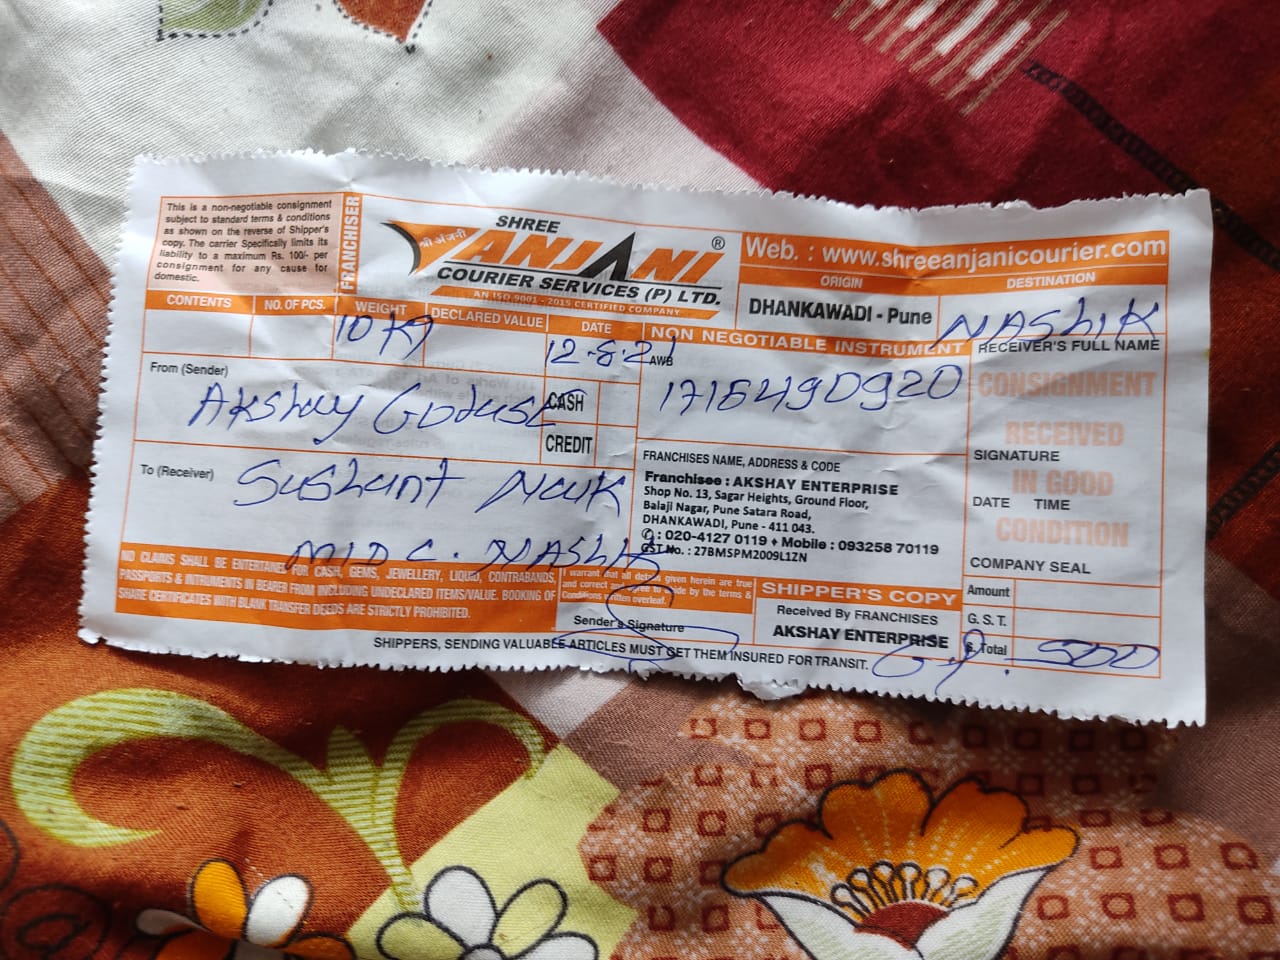 This is a non-negotiable consignment
subject to standard terms & conditions
as shown on the reverse of Shipper's
copy. The carrier Specifically limits its
liability to a maximum Rs. 100/- per
consignment for any cause for
domestic.
FRANCHISER
श्री अंजनी
SHREE
ANJANI ®
COURIER SERVICES (P) LTD.
AN ISO 9001 - 2015 CERTIFIED COMPANY
Web. : www.shreeanjanicourier.com
ORIGIN
DESTINATION
DHANKAWADI - Pune
NASHIK
CONTENTS
NO. OF PCS.
WEIGHT
DECLARED VALUE
DATE
NON NEGOTIABLE INSTRUMENT
10 Kg
12-8-21
AWB
1716490920
RECEIVER'S FULL NAME
CONSIGNMENT
RECEIVED
SIGNATURE
IN GOOD
DATE TIME
CONDITION
COMPANY SEAL
From (Sender)
Akshay Goduse
CASH
CREDIT
To (Receiver)
Sushant Naik
MIDC. NASHIK
FRANCHISES NAME, ADDRESS & CODE
Franchisee : AKSHAY ENTERPRISE
Shop No. 13, Sagar Heights, Ground Floor,
Balaji Nagar, Pune Satara Road,
DHANKAWADI, Pune - 411 043.
✆ : 020-4127 0119 ♦ Mobile : 093258 70119
GST No. : 27BMSPM2009L1ZN
NO CLAIMS SHALL BE ENTERTAINED FOR CASH, GEMS, JEWELLERY, LIQUID, CONTRABANDS,
PASSPORTS & INTRUMENTS IN BEARER FROM INCLUDING UNDECLARED ITEMS/VALUE. BOOKING OF
SHARE CERTIFICATES WITH BLANK TRANSFER DEEDS ARE STRICTLY PROHIBITED.
I warrant that all details given herein are true
and correct and agree to abide by the terms &
Conditions written overleaf.
Sender's Signature
SHIPPER'S COPY
Received By FRANCHISES
AKSHAY ENTERPRISE
Amount
G. S. T.
G. Total 500
SHIPPERS, SENDING VALUABLE ARTICLES MUST GET THEM INSURED FOR TRANSIT.